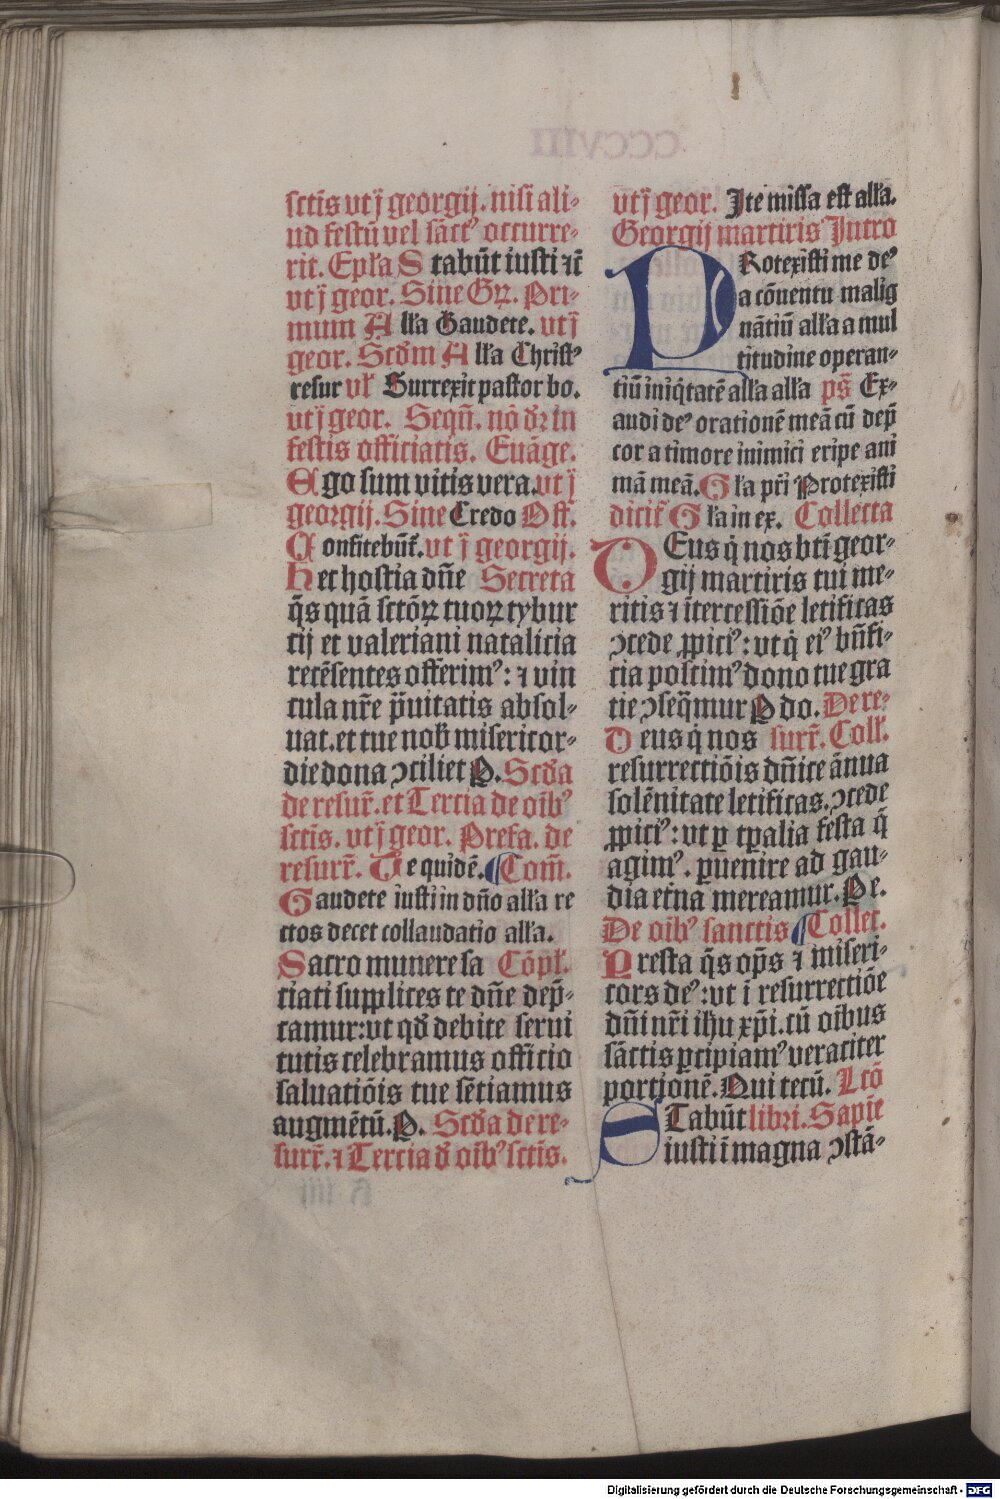 sctis vt j georgij. nisi ali-
ud festū vel sāctꝰ occurre-
rit. Epľa S tabūt iusti ⁊ č
vt j geor. Sine Gꝝ. Pri-
mum A lľa Gaudete. vt j
geor. Scđm A lľa Christꝰ
resur vľ Surrexit pastor bo.
vt j geor. Seqñ. nō đꝛ in
festis officiatis. Euāge.
Ego sum vitis vera. vt j
georgij. Sine Credo Off.
C onfitebūť. vt j georgij.
Hec hostia dñe Secreta
q̄s quā sctōꝝ tuoꝝ tybur
tij et valeriani natalicia
recēsentes offerimꝰ: ⁊ vin
cula nr̄e p̄uitatis absol-
uat. et tue nob̄ misericor-
die dona ꝯciliet P. Scđa
de resur̄. et Tercia de oīb'
sctīs. vt j geor. Prefa. de
resurr̄. Te quidē. Com̄.
Gaudete iusti in dño alľa re
ctos decet collaudatio alľa.
Sacro munere sa Cōpľ.
ciati supplices te dñe dep̄-
camur: ut qđ debite serui
tutis celebramus officio
saluatiōis tue sētiamus
augmētū. P. Scđa de re-
surr̄. ⁊ Tercia đ oīb' sctīs.
vt j geor. Ite missa est alľa.
Georgij martiris Intro
PRotexisti me deꝰ
a cōuentu malig
nātiū alľa a mul
titudine operan-
tiū iniq̇tatē alľa alľa pš Ex-
audi deꝰ orationē meā cū dep̄
cor a timore inimici eripe ani
mā meā. Gľa pr̄i Protexisti
diciť Gľa in ex. Collecta
DEus q̇ nos bti geor-
gij martiris tui me-
ritis ⁊ ītercessiōe letificas
ꝯcede ꝓpiciꝰ: vt q̇ eiꝰ bn̄fi-
cia poscimꝰ dono tue gra
tie ꝯseq̄mur P do. De re-
D eus q̇ nos surr̄. Colľ.
resurrectiōis dn̄ice ānua
solēnitate letificas. ꝯcede
ꝓpiciꝰ: vt ꝑ tꝑalia festa q̄
agimꝰ. ꝑuenire ad gau-
dia etna mereamur. Pe.
De oīb' sanctis Collec.
Presta q̄s op̄s ⁊ miseri-
cors deꝰ: vt ī resurrectiōe
dn̄i nr̄i ihu xp̄i. cū oībus
sāctis ꝑcipiamꝰ veraciter
portionē. Qui tecū. Lcō
STabūt libri. Sapiē
iusti ī magna ꝯstā-
Digitalisierung gefördert durch die Deutsche Forschungsgemeinschaft - DFG